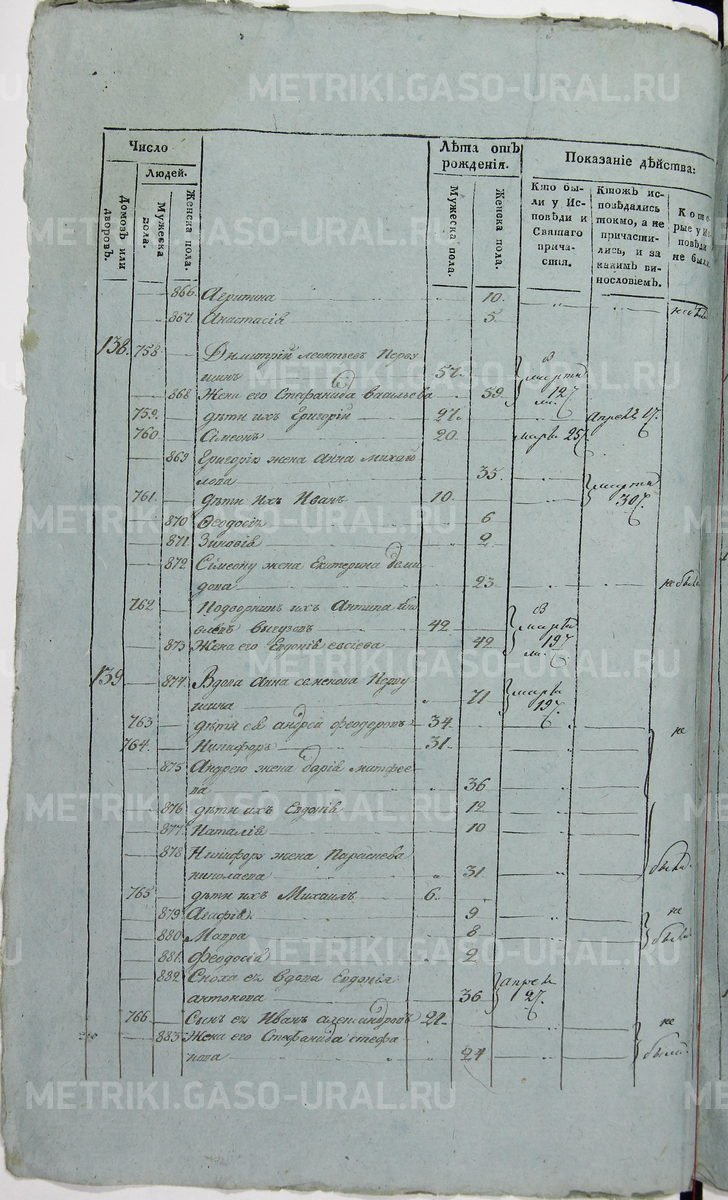 METRIKI.GASO-URAL.RU
Число
Лѣта отъ рожденія.
Показаніе дѣйства:
Людей.
Домовъ или дворовъ.
Мужеска пола.
Женска пола.
Мужеска пола.
Женска пола.
Кто были у Исповѣди и Святаго причастія.
Ктожъ исповѣдались токмо, а не причастились, и за какимъ винословіемъ.
Которые у Исповѣди не были.
866. Агрипина 10.
867. Анастасія 5. не бы
138. 758. Димитрій Леонтьевъ
шинъ 57. в марта 12
868 Жена его Стефанида Васильева 59.
759. дѣти ихъ Григорій апрел 17.
760. Симеонъ 20. март 25
869 Григорію жена Анна Михай
лова 35.
761. дѣти ихъ Иванъ 10. марта 30
870 Феодосія 6
871. Зиновія 2
872 Симеону жена Екатерина Деми
дова 23 не были
762 ихъ Антипа
42 в марта 19
873 Жена его Евдокія Евсіева 42
139 874 Вдова Анна Семенова
шина 71 марта 19
763 дѣти ея Андрей Феодоровъ 34.
764. Никифоръ 31. не
875 Андрею жена Дарія Матфее
ва 36
876 дѣти ихъ Евдокія 12
877 Наталія 10
878 Никифору жена Параскева
Николаева 31 были
765 дѣти ихъ Михаилъ 6.
879 Агафія 9 не
880 Мавра 8 были
881 Феодосія 2
882 Сноха ея вдова Евдокія
Антонова 36 апрел 2
766 Сынъ ея Иванъ Александровъ 21. не
883 Жена его Стефанида Стефа
нова 24 были